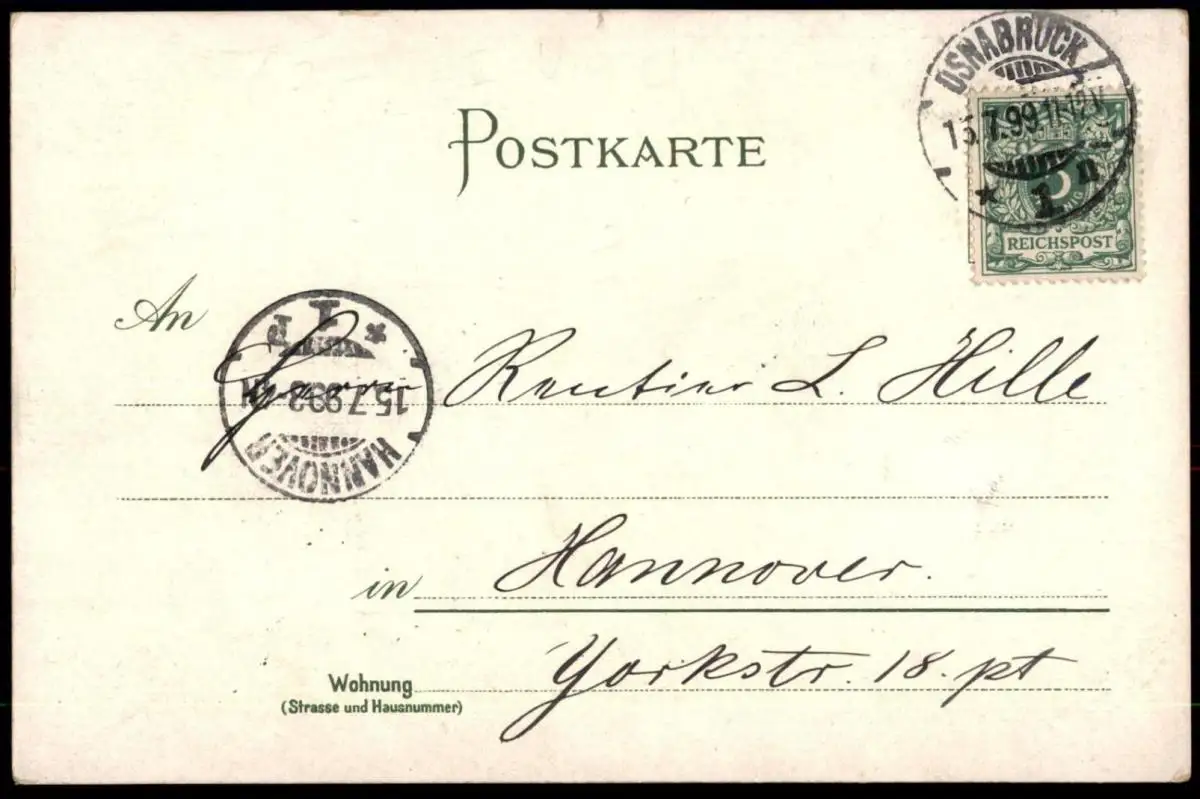 OSNABRÜCK
15.7.99 11-12V
* 1 n
5
REICHSPOST
POSTKARTE
* 1 P
15.7.99 3-4N
HANNOVER
An Herrn Rentier L. Hille
in Hannover.
Wohnung Yorkstr. 18. pt
(Strasse und Hausnummer)